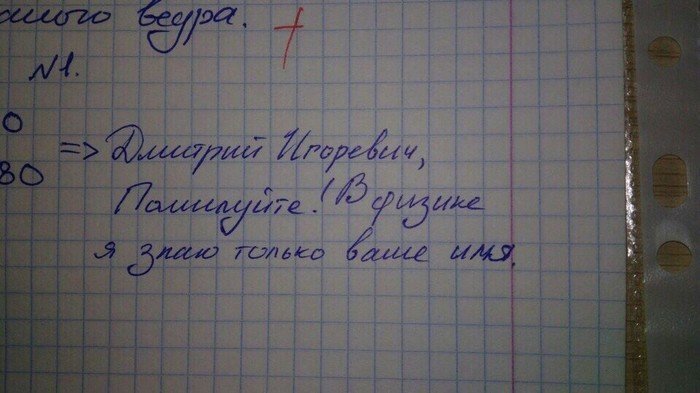 ведра. +
№1.
0
80 => Дмитрий Игоревич,
Помилуйте! В физике
я знаю только ваше имя.